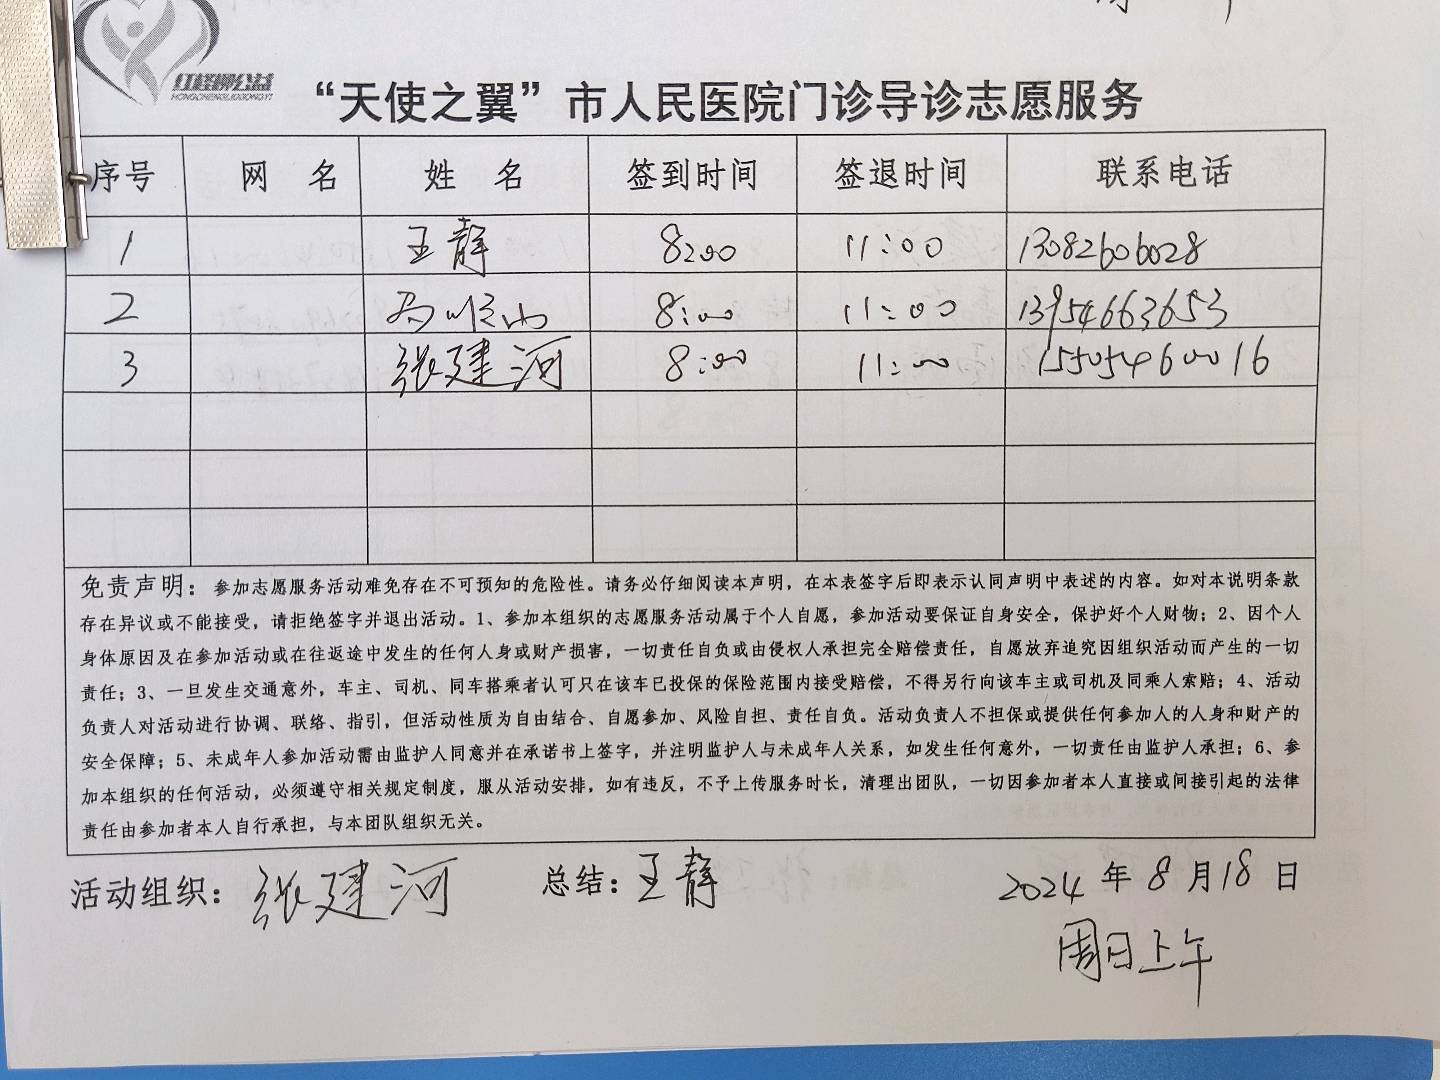 红柽柳公益
HONGCHENGLIUGONGYI
“天使之翼”市人民医院门诊导诊志愿服务
序号 网 名 姓 名 签到时间 签退时间 联系电话
1 王静 8:00 11:00 13082606028
2 8:00 11:00 13954663653
3 张建河 8:00 11:00 15505460016
免责声明：参加志愿服务活动难免存在不可预知的危险性。请务必仔细阅读本声明，在本表签字后即表示认同声明中表述的内容。如对本说明条款
存在异议或不能接受，请拒绝签字并退出活动。1、参加本组织的志愿服务活动属于个人自愿，参加活动要保证自身安全，保护好个人财物；2、因个人
身体原因及在参加活动或在往返途中发生的任何人身或财产损害，一切责任自负或由侵权人承担完全赔偿责任，自愿放弃追究因组织活动而产生的一切
责任；3、一旦发生交通意外，车主、司机、同车搭乘者认可只在该车已投保的保险范围内接受赔偿，不得另行向该车主或司机及同乘人索赔；4、活动
负责人对活动进行协调、联络、指引，但活动性质为自由结合、自愿参加、风险自担、责任自负。活动负责人不担保或提供任何参加人的人身和财产的
安全保障；5、未成年人参加活动需由监护人同意并在承诺书上签字，并注明监护人与未成年人关系，如发生任何意外，一切责任由监护人承担；6、参
加本组织的任何活动，必须遵守相关规定制度，服从活动安排，如有违反，不予上传服务时长，清理出团队，一切因参加者本人直接或间接引起的法律
责任由参加者本人自行承担，与本团队组织无关。
活动组织：张建河 总结：王静 2024 年 8 月 18 日
周日上午